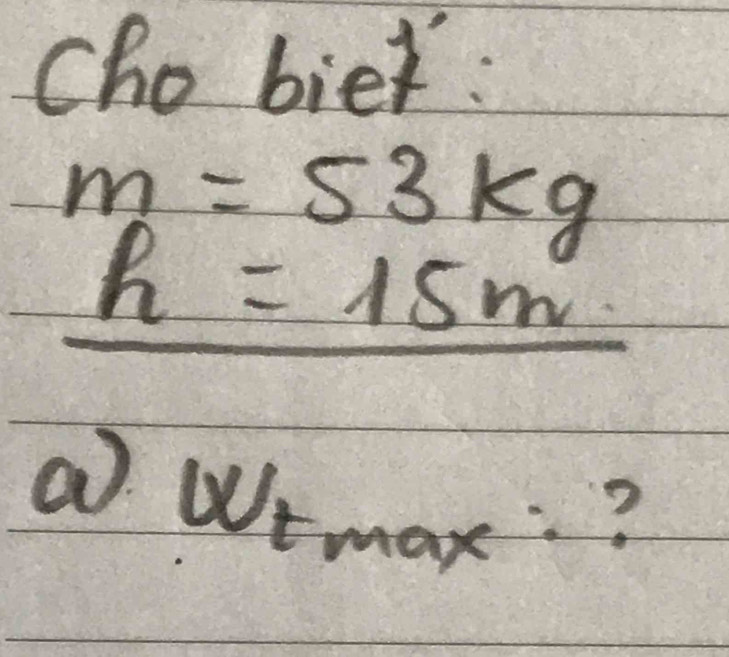 Cho biết :
m = 53 kg
h = 15 m
a) Wtmax : ?